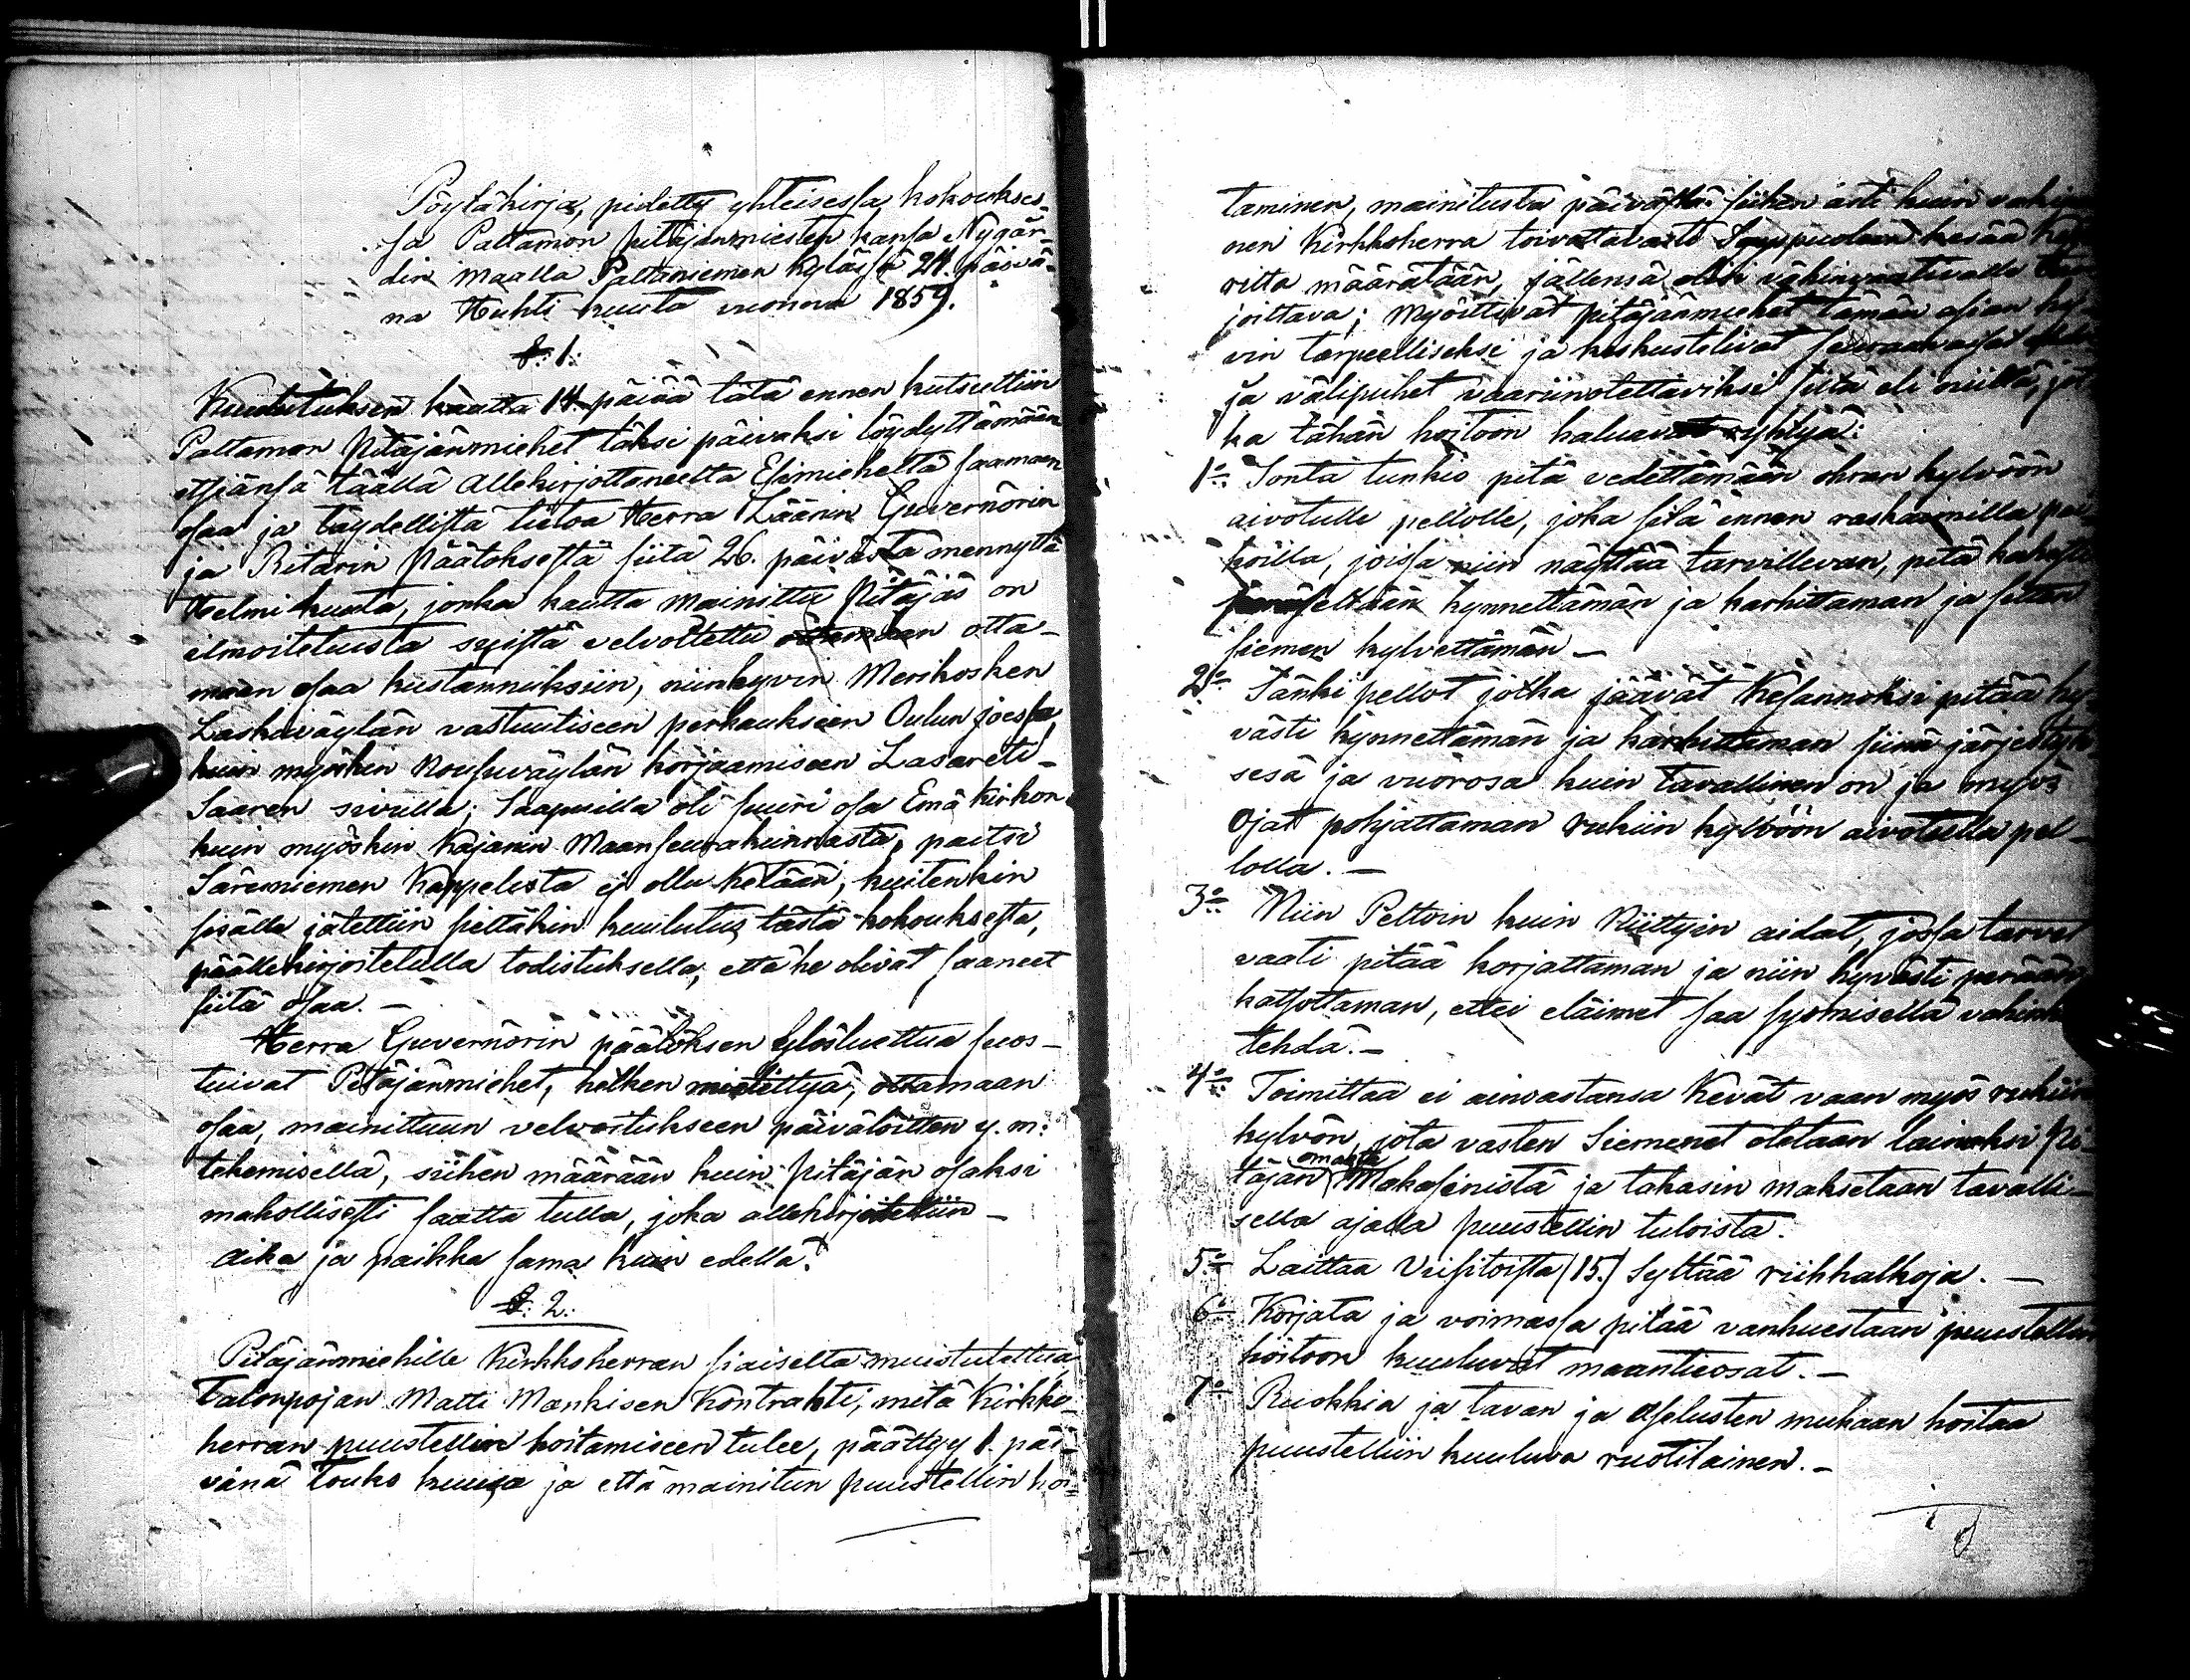 Pöytäkirja, pidetty yhteisessa kokoukses-
sa Paltamon pitäjänmiesten kansa Nygår-
din maalla Paltaniemen kyläsä 24. päivä-
nä Huhti kuuta vuonna 1859.
§: 1:
Kuulutuksen kautta 14 päivää tätä ennen kutsuttiin
Paltamon Pitäjänmiehet täksi päiväksi löydyttämään
itsiänsä täällä allekirjottaneelta Esimieheltä saamaan
osaa ja täydellistä tietoa Herra Läänin Guvernörin
ja Ritarin Päätöksestä siitä 26. päivästä mennyttä
Helmi kuuta, jonka kautta mainittu Pitäjäs on
ilmoitetuista syistä velvoitettu otta-
maan osaa kustannuksiin, niinhyvin Merikosken
Laskuväylän vastuutiseen perkaukseen Oulun joessa,
kuin myöskin Nousuväylän korjaamiseen Lasareti-
Saaren sivulla; Saapuilla oli suuri osa Emä kirkon
kuin myöskin Kajanin Maanseurakunnasta, paitsi
Säresniemen Kappelista ej ollu ketään, kuitenkin
sisälle jätettiin sieltäkin kuulutus tästä kokouksesta,
päällekirjoitetulla todistuksella, että he olivat saaneet
siitä osaa. –
Herra Guvernörin päätöksen ylösluettua suos-
tuivat Pitäjänmiehet, hetken mietittyä, ottamaan
osaa, mainittuun velvoitukseen päivätöitten y. m:
tekemisellä, siihen määrään kuin pitäjän osaksi
mahollisesti saatta tulla, joka allekirjoitettiin –
aika ja paikka sama kuin edellä.
§: 2:
Pitäjänmiehille Kirkkoherran siaiselta muistutettua
Talonpojan Matti Mankisen Kontrahti, mitä Kirkko-
herran puustellin hoitamiseen tulee, päättyy 1. päi-
vänä Touko kuusa ja että mainitun puustellin hoi-
taminen, mainitusta päivästä siihen asti kuin vakinai
nen Kirkkoherra toivottavasti kesää
ritta määrätään, jällensä olisi vähinvaativalle
joittava; Myöittivät pitäjänmiehet tämän asian hy-
vin tarpeelliseksi ja keskustelivat seuraavaisia
ja välipuhet vaariinotettaviksi siltä eli niiltä, jot
ka tähän hoitoon haluavat ryhtyä:
1o: Sonta tunkio pitä vedettämään ohran kylvöön
aivotulle pellolle, joka sitä ennen raskaimilla pai
koilla, joissa niin näyttää tarvittevan, pitä kahesti
kynnettämän ja karhittaman ja sitten
siemen kylvettämän –
2o: Sänki pellot jotka jäävät Kesannoksi pitää hy-
västi kynnettämän ja karhittaman siinä järjestyk
sesä ja vuorosa kuin tavallinen on ja myös
Ojat pohjattaman rukiin kylvöön aivotulla pel-
lolla. –
3o: Niin Peltoin kuin Niittyin aidat, jossa tarve
vaati pitää korjattaman ja niin hyvästi perään
katsottaman, ettei eläimet saa syömisellä vahinko
tehdä. –
4o: Toimittaa ei ainoastansa Kevät vaan myös rukiin
kylvön, jota vasten Siemenet otetaan lainaksi Pi-
täjän omasta Makasinista ja takasin maksetaan tavalli-
sella ajalla puustellin tuloista.
5o: Laittaa Viisitoista (15.) Syltää riihhalkoja. –
6o: Korjata ja voimassa pitää vanhuestaan puustellin
hoitoon kuuluvat maantieosat. –
7o: Ruokkia ja tavan ja Asetusten mukaan hoitaa
puustelliin kuuluva ruotilainen. –